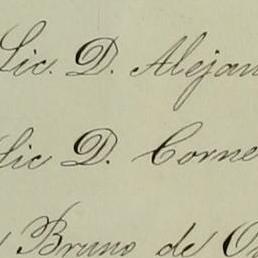 Lic. D. Alejan
Lic D. Corne
Bruno de O